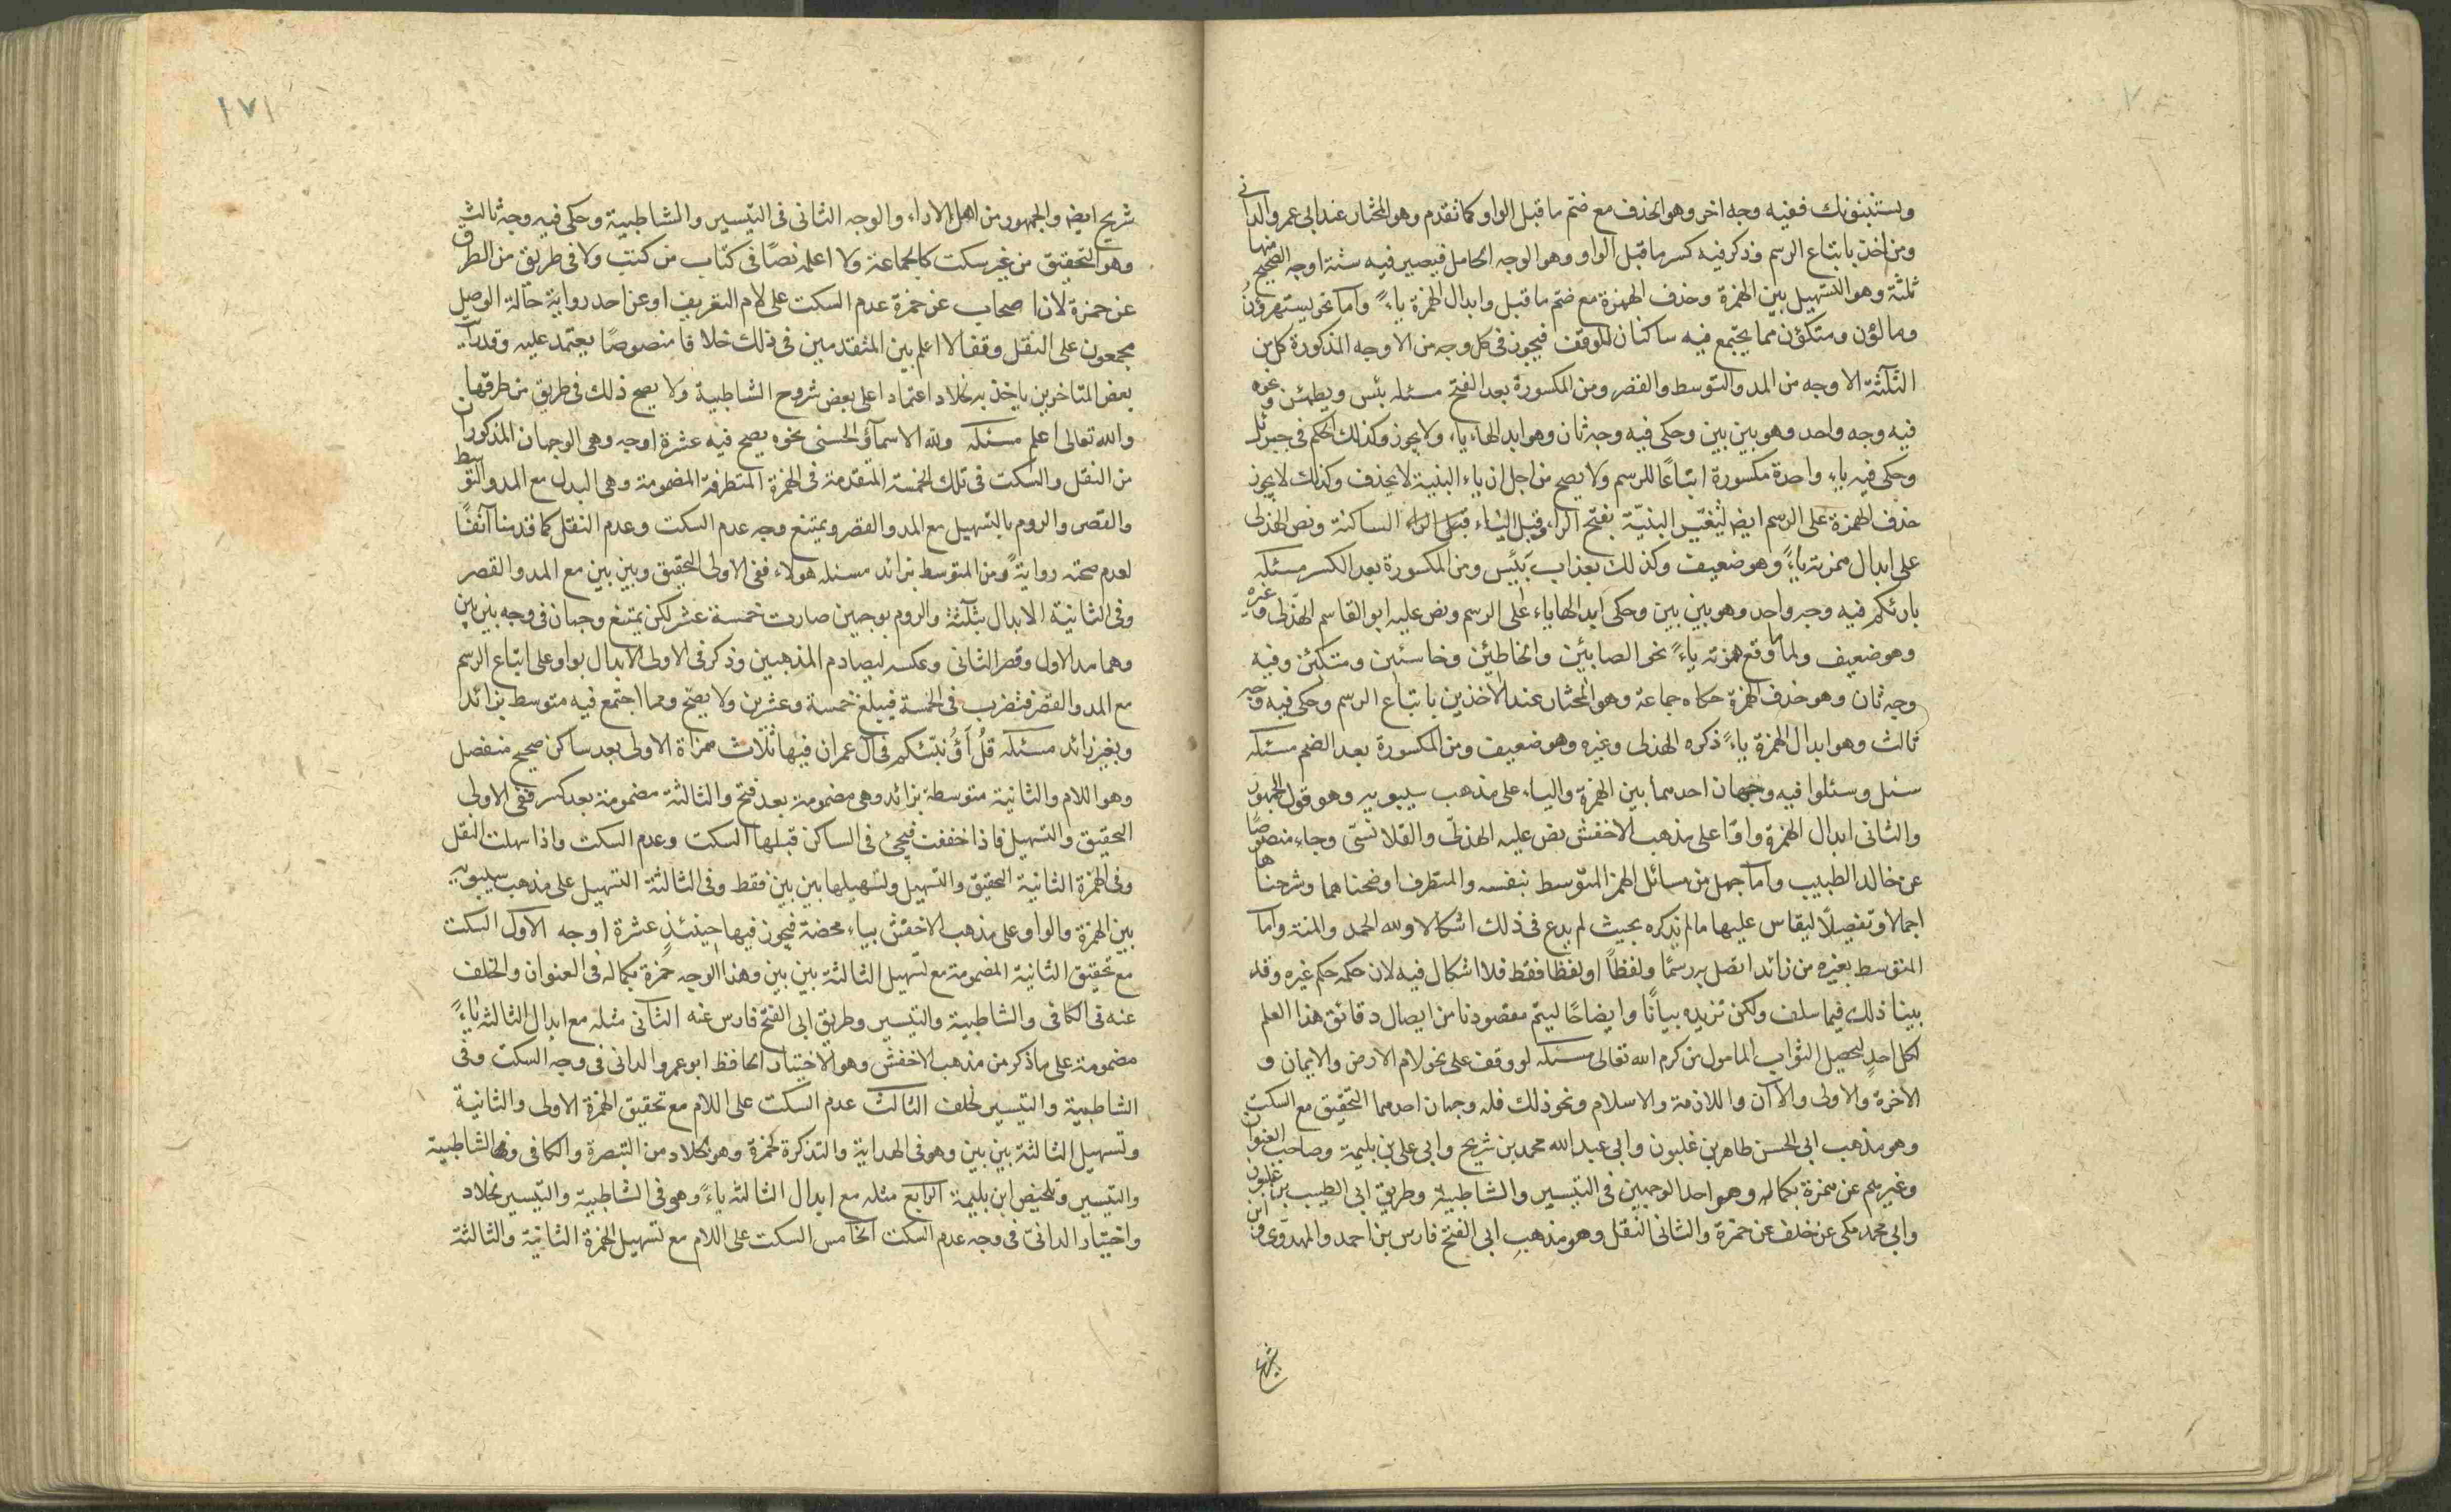 ويستنبئونك ففيه وجه اخر وهو الحذف مع ضم ما قبل الواو كما تقدم وهو المختار عند ابى عمرو الدانى
ومن اخذ باتباع الرسم وذكر فيه كسر ما قبل الواو وهو الوجه الخامل فيصير فيه ستة اوجه الصحيح منها
ثلثة وهو التسهيل بين الهمزة وحذف الهمزة مع ضم ما قبل وابدال الهمزة ياءً واما نحو يستهزؤن
ومالؤن ومتكؤن مما يجتمع فيه ساكنان للوقف فيجوز فى كل وجه من الاوجه المذكورة كل من
الثلثة الاوجه من المد والتوسط والقصر ومن المكسورة بعد الفتح مسئله بئس ويطمئن ونحوه
فيه وجه واحد وهو بين بين وحكى فيه وجه ثان وهو ابدالها ياء ولا يجوز وكذلك الحكم فى جبرئل
وحكى فيه ياء واحدة مكسورة اتباعًا للرسم ولا يصح من اجل ان ياء البنية لا يحذف وكذلك لا يجوز
حذف الهمزة على الرسم ايضا لتغيّر البنيّة بفتح الراء وقبل الياء قبل الراء الساكنة ونص الهذلى
على ابدال همزته ياءً وهو ضعيف وكذلك بعذاب بَئيس ومن المكسورة بعد الكسر مسئله
بارئكم فيه وجه واحد وهو بين بين وحكى ابدالها ياء على الرسم ونص عليه ابو القاسم الهذلى وغيره
وهو ضعيف ولما وقع همزته ياءً نحو الصابئين والخاطئين وخاسئين ومتكئين وفيه
وجه ثان وهو حذف الهمزة حكاه جماعة وهو المختار عند الاخذين باتباع الرسم وحكى فيه وجه
ثالث وهو ابدال الهمزة ياءً ذكره الهذلى وغيره وهو ضعيف ومن المكسورة بعد الضم مسئله
سئل وسئلوا فيه وجهان احدهما بين الهمزة والياء على مذهب سيبويه وهو قول الجمهور
والثانى ابدال الهمزة واوًا على مذهب الاخفش نص عليه الهذلى والقلانسى وجاء منصوصًا
عن خالد الطبيب واما جمل من مسائل الهمز المتوسط بنفسه والمتطرف اوضحناهما وشرحناها
اجمالا وتفصيلًا ليقاس عليها ما لم نذكره بحيث لم يدع فى ذلك اشكالا ولله الحمد والمنة واما
المتوسط بغيره من زائد اتصل به رسمًا ولفظاً او لفظا فقط فلا اشكال فيه لان حكمه حكم غيره وقد
بينا ذلك فيما سلف ولكن نزيده بيانًا وايضاحًا ليتم مقصودنا من ايصال دقائق هذا العلم
لكل احدٍ لتحصيل الثواب المامول من كرم الله تعالى مسئله لو وقف على نحو لام الارض والايمان و
الاخرة والاولى والآن واللازمة والاسلام ونحو ذلك فله وجهان احدهما التحقيق مع السكت
وهو مذهب ابى الحسن طاهر بن غلبون وابى عبد الله محمد بن شريح وابى على بن بليمة وصاحب العنوان
وغيرهم عن حمزة بكماله وهو احد الوجهين فى التيسير والشاطبية وطريق ابى الطيب بن غلبون
وابى محمد مكى عن خلف عن حمزة والثانى النقل وهو مذهب ابى الفتح فارس بن احمد والمهدوى وابن
شريح
١٧١
شريح ايضا والجمهور من اهل الاداء والوجه الثانى فى التيسير والشاطبية وحكى فيه وجه ثالث
وهو التحقيق من غير سكت كالجماعة ولا اعلمه نصًا فى كتاب من كتب ولا فى طريق من الطرق
عن حمزة لان اصحاب عن حمزة عدم السكت على لام التعريف او عن احد رواية حالة الوصل
مجمعون على النقل وقفا لا اعلم بين المتقدمين فى ذلك خلافا منصوصًا يعتمد عليه وقد رايت
بعض المتاخرين ياخذ به لخلاد اعتمادا على بعض شروح الشاطبية ولا يصح ذلك فى طريق من طرقها
والله تعالى اعلم مسئله ولله الاسمآؤ الحسنى نحوه يصح فيه عشرة اوجه وهى الوجهان المذكوران
من النقل والسكت فى تلك الخمسة المتقدمة فى الهمزة المتطرفة المضمومة وهى البدل مع المد والتوسط
والقصر والروم بالتسهيل مع المد والقصر ويمتنع وجه عدم السكت وعدم النقل كما قدمنا آنفًا
لعدم صحته روايةً ومن المتوسط بزائد مسئله هولاء ففى الاولى التحقيق وبين بين مع المد والقصر
وفى الثانية الابدال بثلثة والروم بوجهين صارت خمسة عشر لكن يمتنع وجهان فى وجه بين بين
وهما مد الاول وقصر الثانى وعكسه لتصادم المذهبين وذكر فى الاولى الابدال بواو على اتباع الرسم
مع المد والقصر فتضرب فى الخمسة فيبلغ خمسة وعشرين ولا يصح ومما اجتمع فيه متوسط بزائد
وبغير زائد مسئله قُلْ أَؤُنَبّئكم فى ال عمران فيها ثلاث همزاة الاولى بعد ساكن صحيح منفصل
وهو اللام والثانية متوسطة بزائد وهى مضمومة بعد فتح والثالثة مضمومة بعد كسر ففى الاولى
التحقيق والتسهيل فاذا خففت فيجئ فى الساكن قبلها السكت وعدم السكت واذا سهلت النقل
وفى الهمزة الثانية التحقيق والتسهيل وتسهيلها بين بين فقط وفى الثالثة التسهيل على مذهب سيبويه
بين الهمزة والواو وعلى مذهب الاخفش بياء محضة فيجوز فيها حينئذٍ عشرة اوجه الاول السكت
مع تحقيق الثانية المضمومة مع تسهيل الثالثة بين بين وهذا الوجه حمزة بكماله فى العنوان ولخلف
عنه فى الكافى والشاطبية والتيسير وطريق ابى الفتح فارس عنه الثانى مثله مع ابدال الثالثة ياءً
مضمومة على ما ذكر من مذهب الاخفش وهو الاختيار الحافظ ابو عمرو الدانى فى وجه السكت وفى
الشاطبية والتيسير لخلف الثالث عدم السكت على اللام مع تحقيق الهمزة الاولى والثانية
وتسهيل الثالثة بين بين وهو فى الهداية والتذكرة لحمزة وهو لخلاد من التبصرة والكافى وفى الشاطبية
والتيسير وتلخيص ابن بليمة الرابع مثله مع ابدال الثالثة ياءً وهو فى الشاطبية والتيسير لخلاد
واختيار الدانىّ فى وجه عدم السكت الخامس السكت على اللام مع تسهيل الهمزة الثانية والثالثة